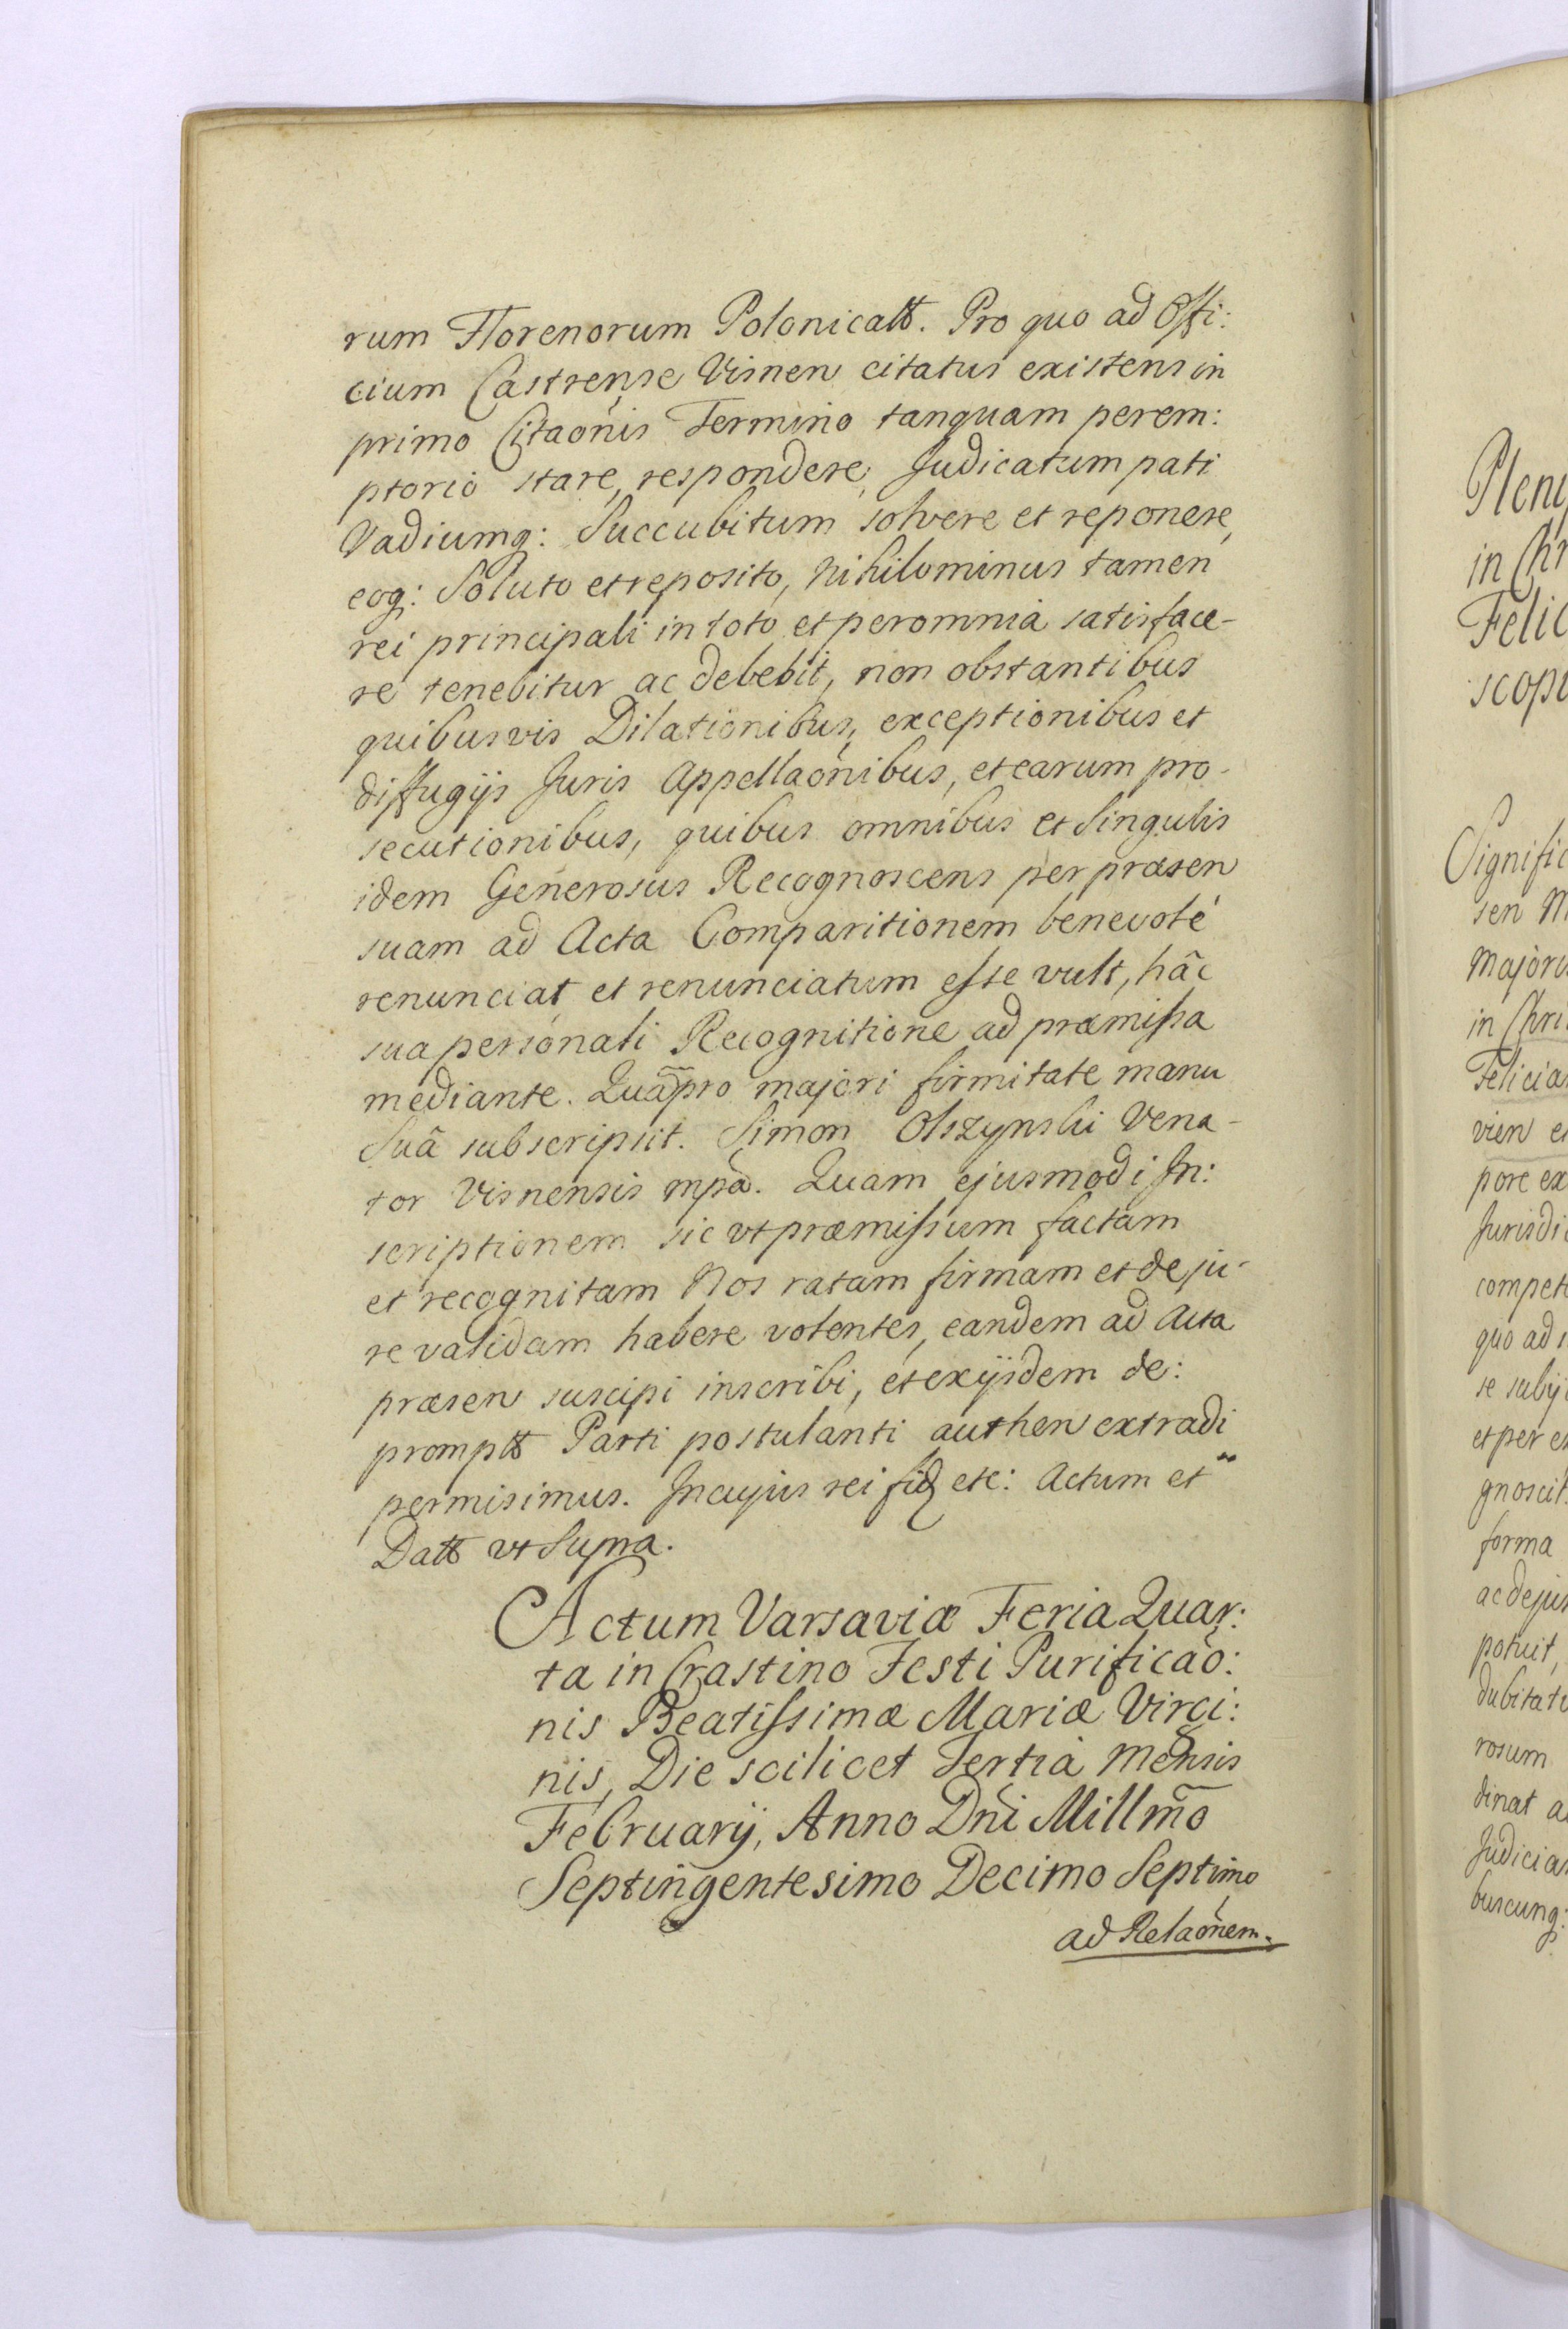 rum Florenorum Polonicalt. Pro quo ad Offi:
cium Castrense Visnen citatus existens in
primo Citaõnis Termino tanquam perem:
ptorio stare, respondere, Judicatum pati
Vadiumq: Succubitum solvere et reponere,
eoq: Soluto et reposito, Nihilominus tamen
rei principali in toto et per omnia satisface-
re tenebitur ac debebit, non obstantibus
quibusvis Dilationibus, exceptionibus et
diffugijs Juris Appellaõnibus, et earum pro-
secutionibus, quibus omnibus et Singulis
idem Generosus Recognoscens per præsen
suam ad Acta Comparitionem benevolé
renunciat et renunciatum esse vult, hâc
sua personali Recognitione ad præmissa
mediante. Quã pro majori firmitate manu
Suâ subscripsit. Simon Olszynski Vena-
tor Visnensis mpã. Quam ejusmodi In:
scriptionem sic ut præmissum factam
et recognitam Nos ratam firmam et de ju-
re validam habere volentes, eandem ad Acta
præsen suscipi inscribi, et ex ijsdem de:
prompt Parti postulanti authen extradi
permisimus. In cujus rei fid etc: Actum et
Datt ut Supra.
Actum Varsaviæ Feria Quar:
ta in Crastino Festi Purificaõ:
nis Beatissimæ Mariæ Virgi:
nis, Die scilicet Tertia Mensis
Februarij, Anno Dñi Millmõ
Septingentesimo Decimo Septimo
ad Relaõnem.
in Chr
Felic
Signific
sen M
Majoru
in Chri
Felicia
vien e
pore ex
Jurisdi
compet
quo ad
et per e
gnoscit
forma
ac de ju
potuit,
dubitat
rosum
dinat a
Judicia
buscunq: